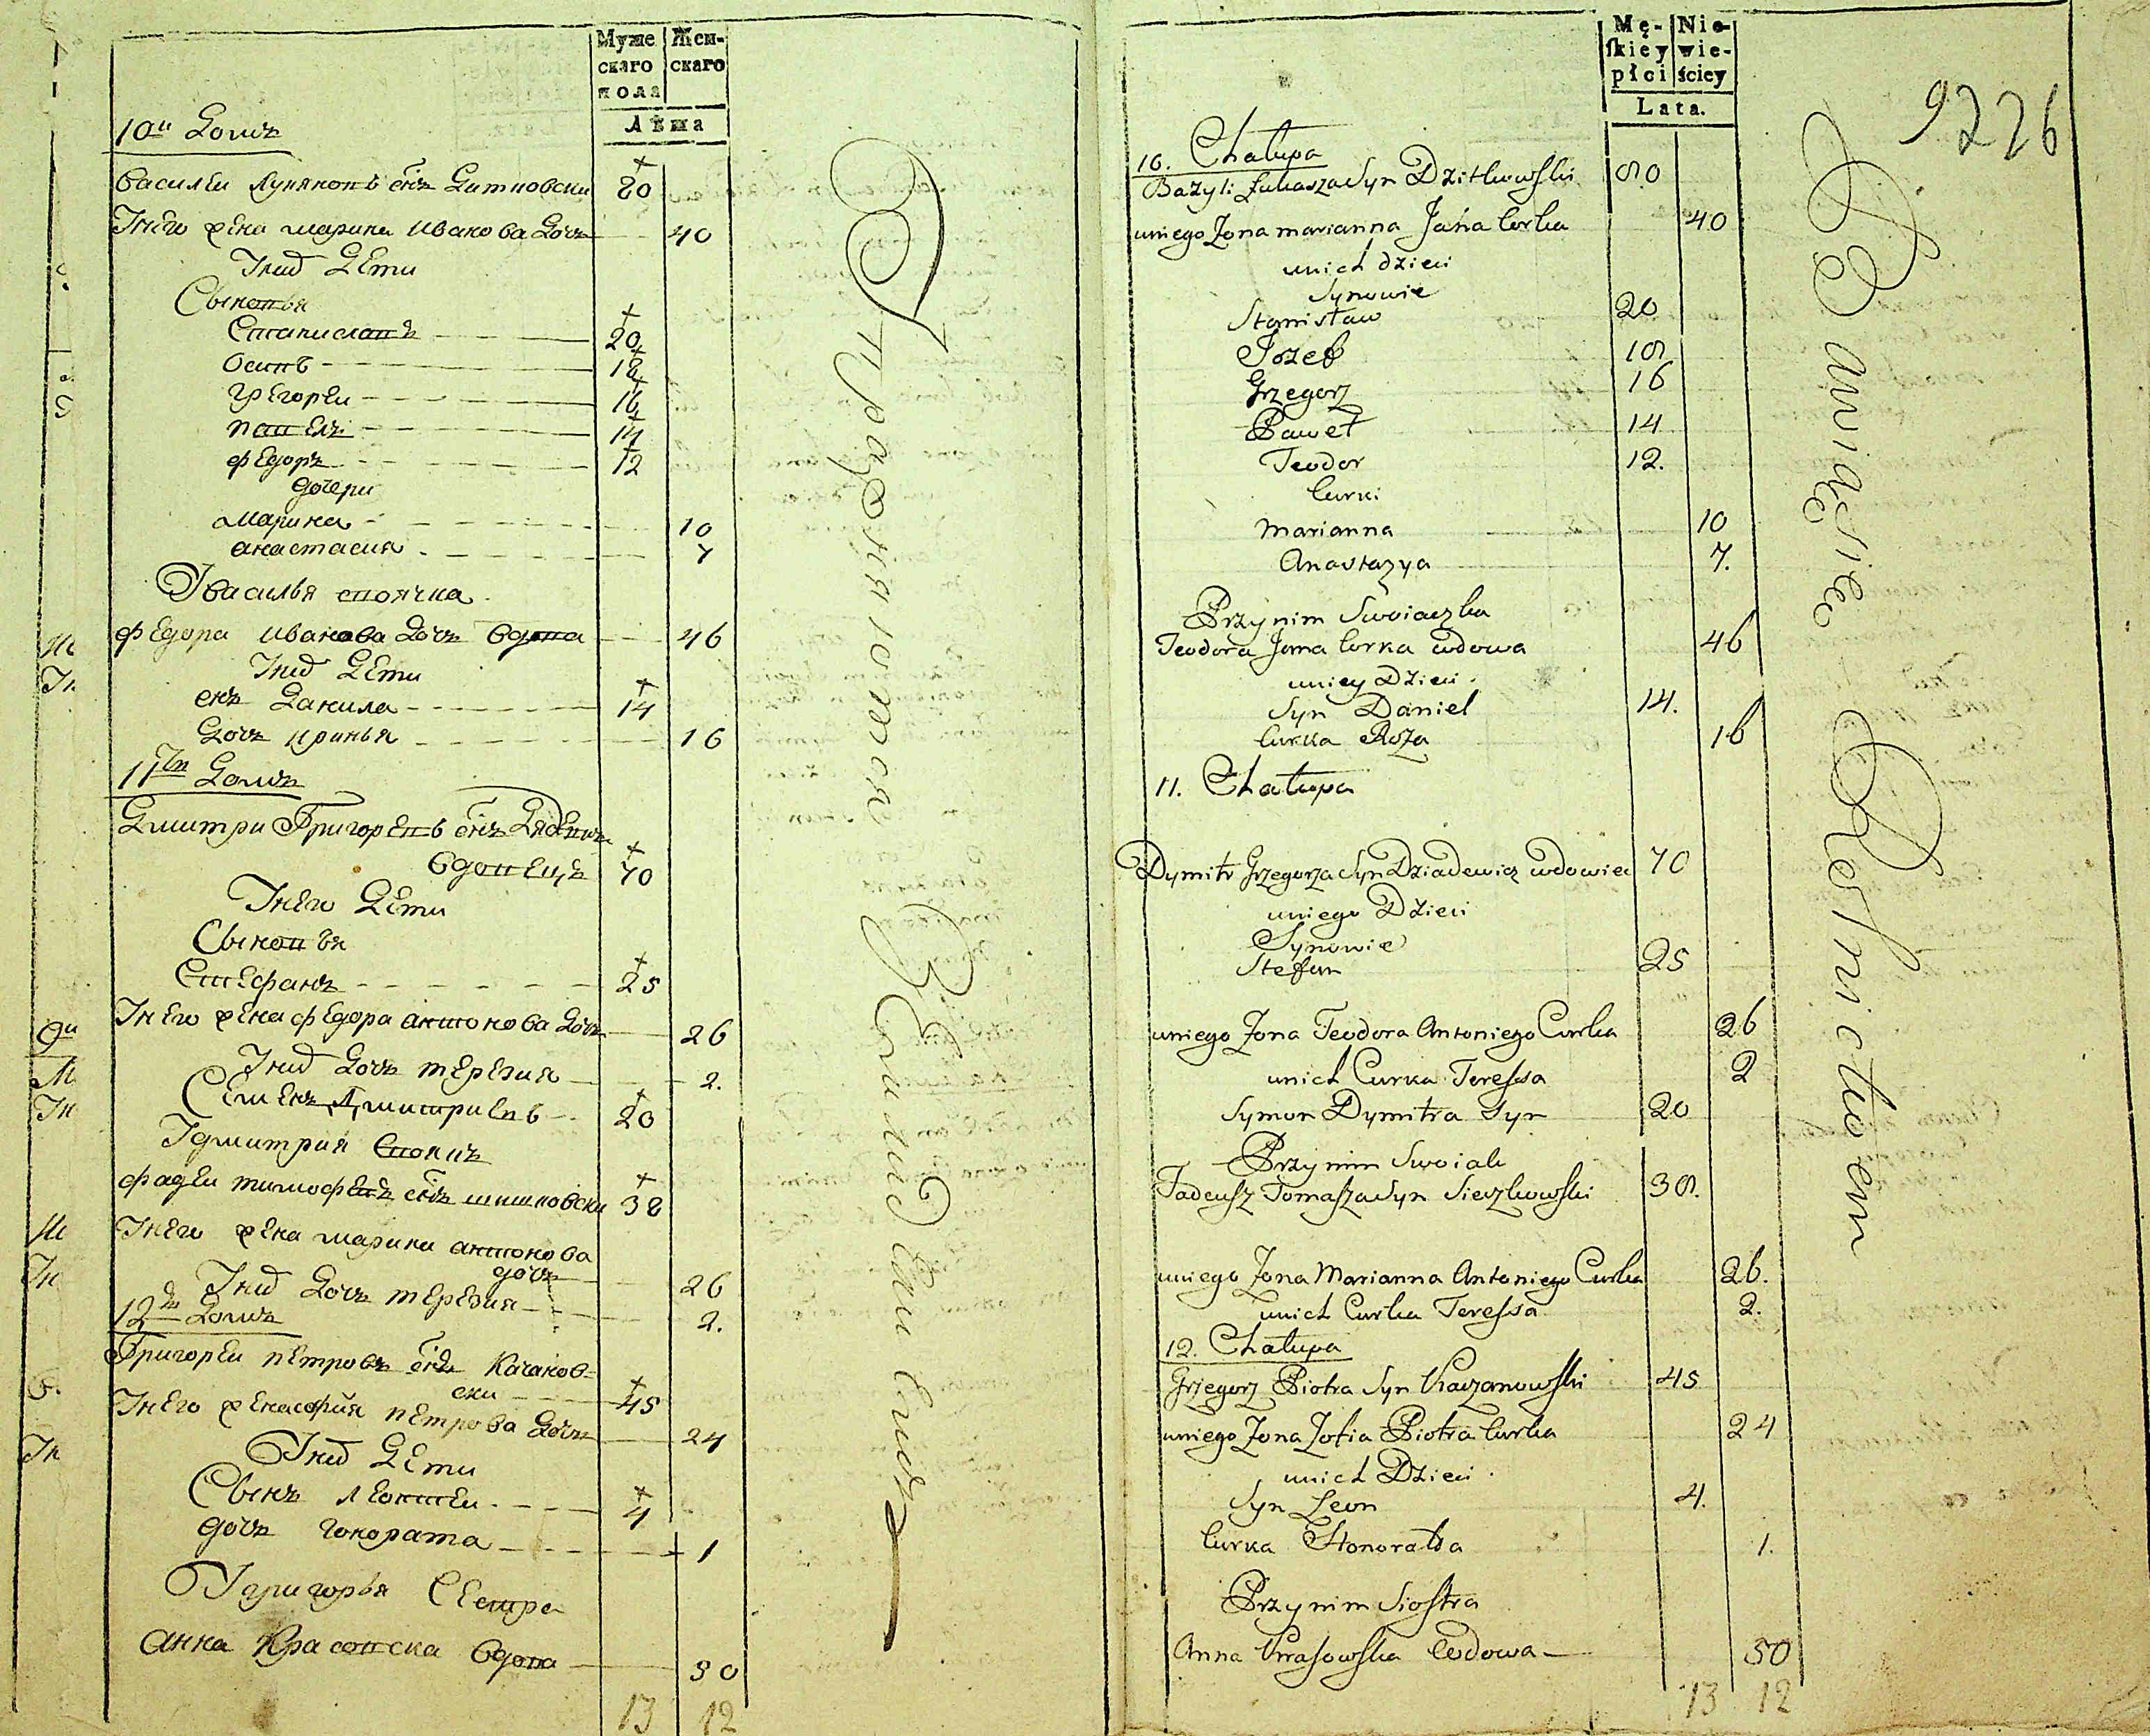 Муже
скаго
пола
Жен-
скаго
Лѣта
10й Домъ
Василеи Лукяновъ снъ Дитковски 80
Унего жена марина Ивано ва Дочь 40
Унихъ Дети
Сыновья
Станиславъ 20
Осипъ 18
григореи 16
павелъ 14
федоръ 12
дочери
марина 10
анастасия 7
Увасилья своячка
федора Иванова Дочь вдова 46
Дети
снъ Данила 14
Дочь иринья 16
11й Домъ
Дмитри Григоревъ снъ Дядевичъ
вдовецъ 70
Унего Дети
Сыновья
Стефанъ 25
Унего жена федора антонова Дочь 26
Унихъ Дочь терезия 2.
Семенъ Дмитриевъ 20
Удмитрия своякъ
фадеи тимофеевъ снъ 38
Унего жена марина антонова
дочь 26
Унихъ Дочь терезия 2.
12й Домъ
Григореи петровъ снъ Качанов=
ски 45
Унего жена софия петрова Дочь 24
Унихъ Дети
Сынъ леонтеи 4
дочь гонората 1
Угригорья Сестра
анна Красовска вдова 50
13 12
Mę-
skiey
płci
Nie-
wie-
ściey
Lata.
9226
10. Chałupa
Bazyli Łukasza Syn Dzitkowski 80
uniego Zona marianna Jana Corka 40
unich dzieci
Synowie
Stanisław 20
Jozef 18
Grzegorz 16
Paweł 14
Teodor 12.
Curki
Marianna 10
Anastazya 7.
Przynim Swoiaczka
Teodora Jana Corka wdowa 46
uniey Dzieci.
Syn Daniel 14.
Curka Roza 16
11. Chałupa
Dymitr Grzegorza Syn Dziadewicz wdowiec 70
uniego Dzieci
Synowie
Stefan 25
uniego Zona Teodora Antoniego Curka 26
unich Curka Teressa 2
Symon Dymitra Syn 20
Przynim Swoiak
Tadeusz Tomasza Syn Sieczkowski 38.
uniego Zona Marianna Antoniego Curka 26.
unich Curka Teressa 2.
12. Chałupa
Grzegorz Piotra Syn Kaczanowski 45
uniego Zona Zofia Piotra Curka 24
unich Dzieci.
Syn Leon 4.
Curka Honorata 1.
Przynim Siostra
Anna Krasowska Wdowa 50
13 12